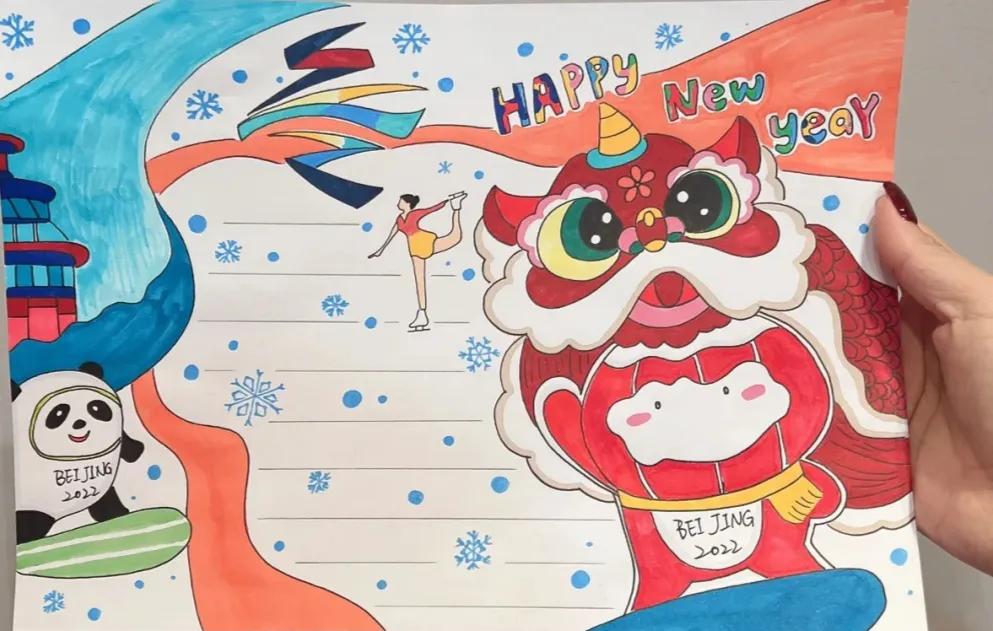 HAPPY New yeaY
BEIJING
2022
BEI JING
2022